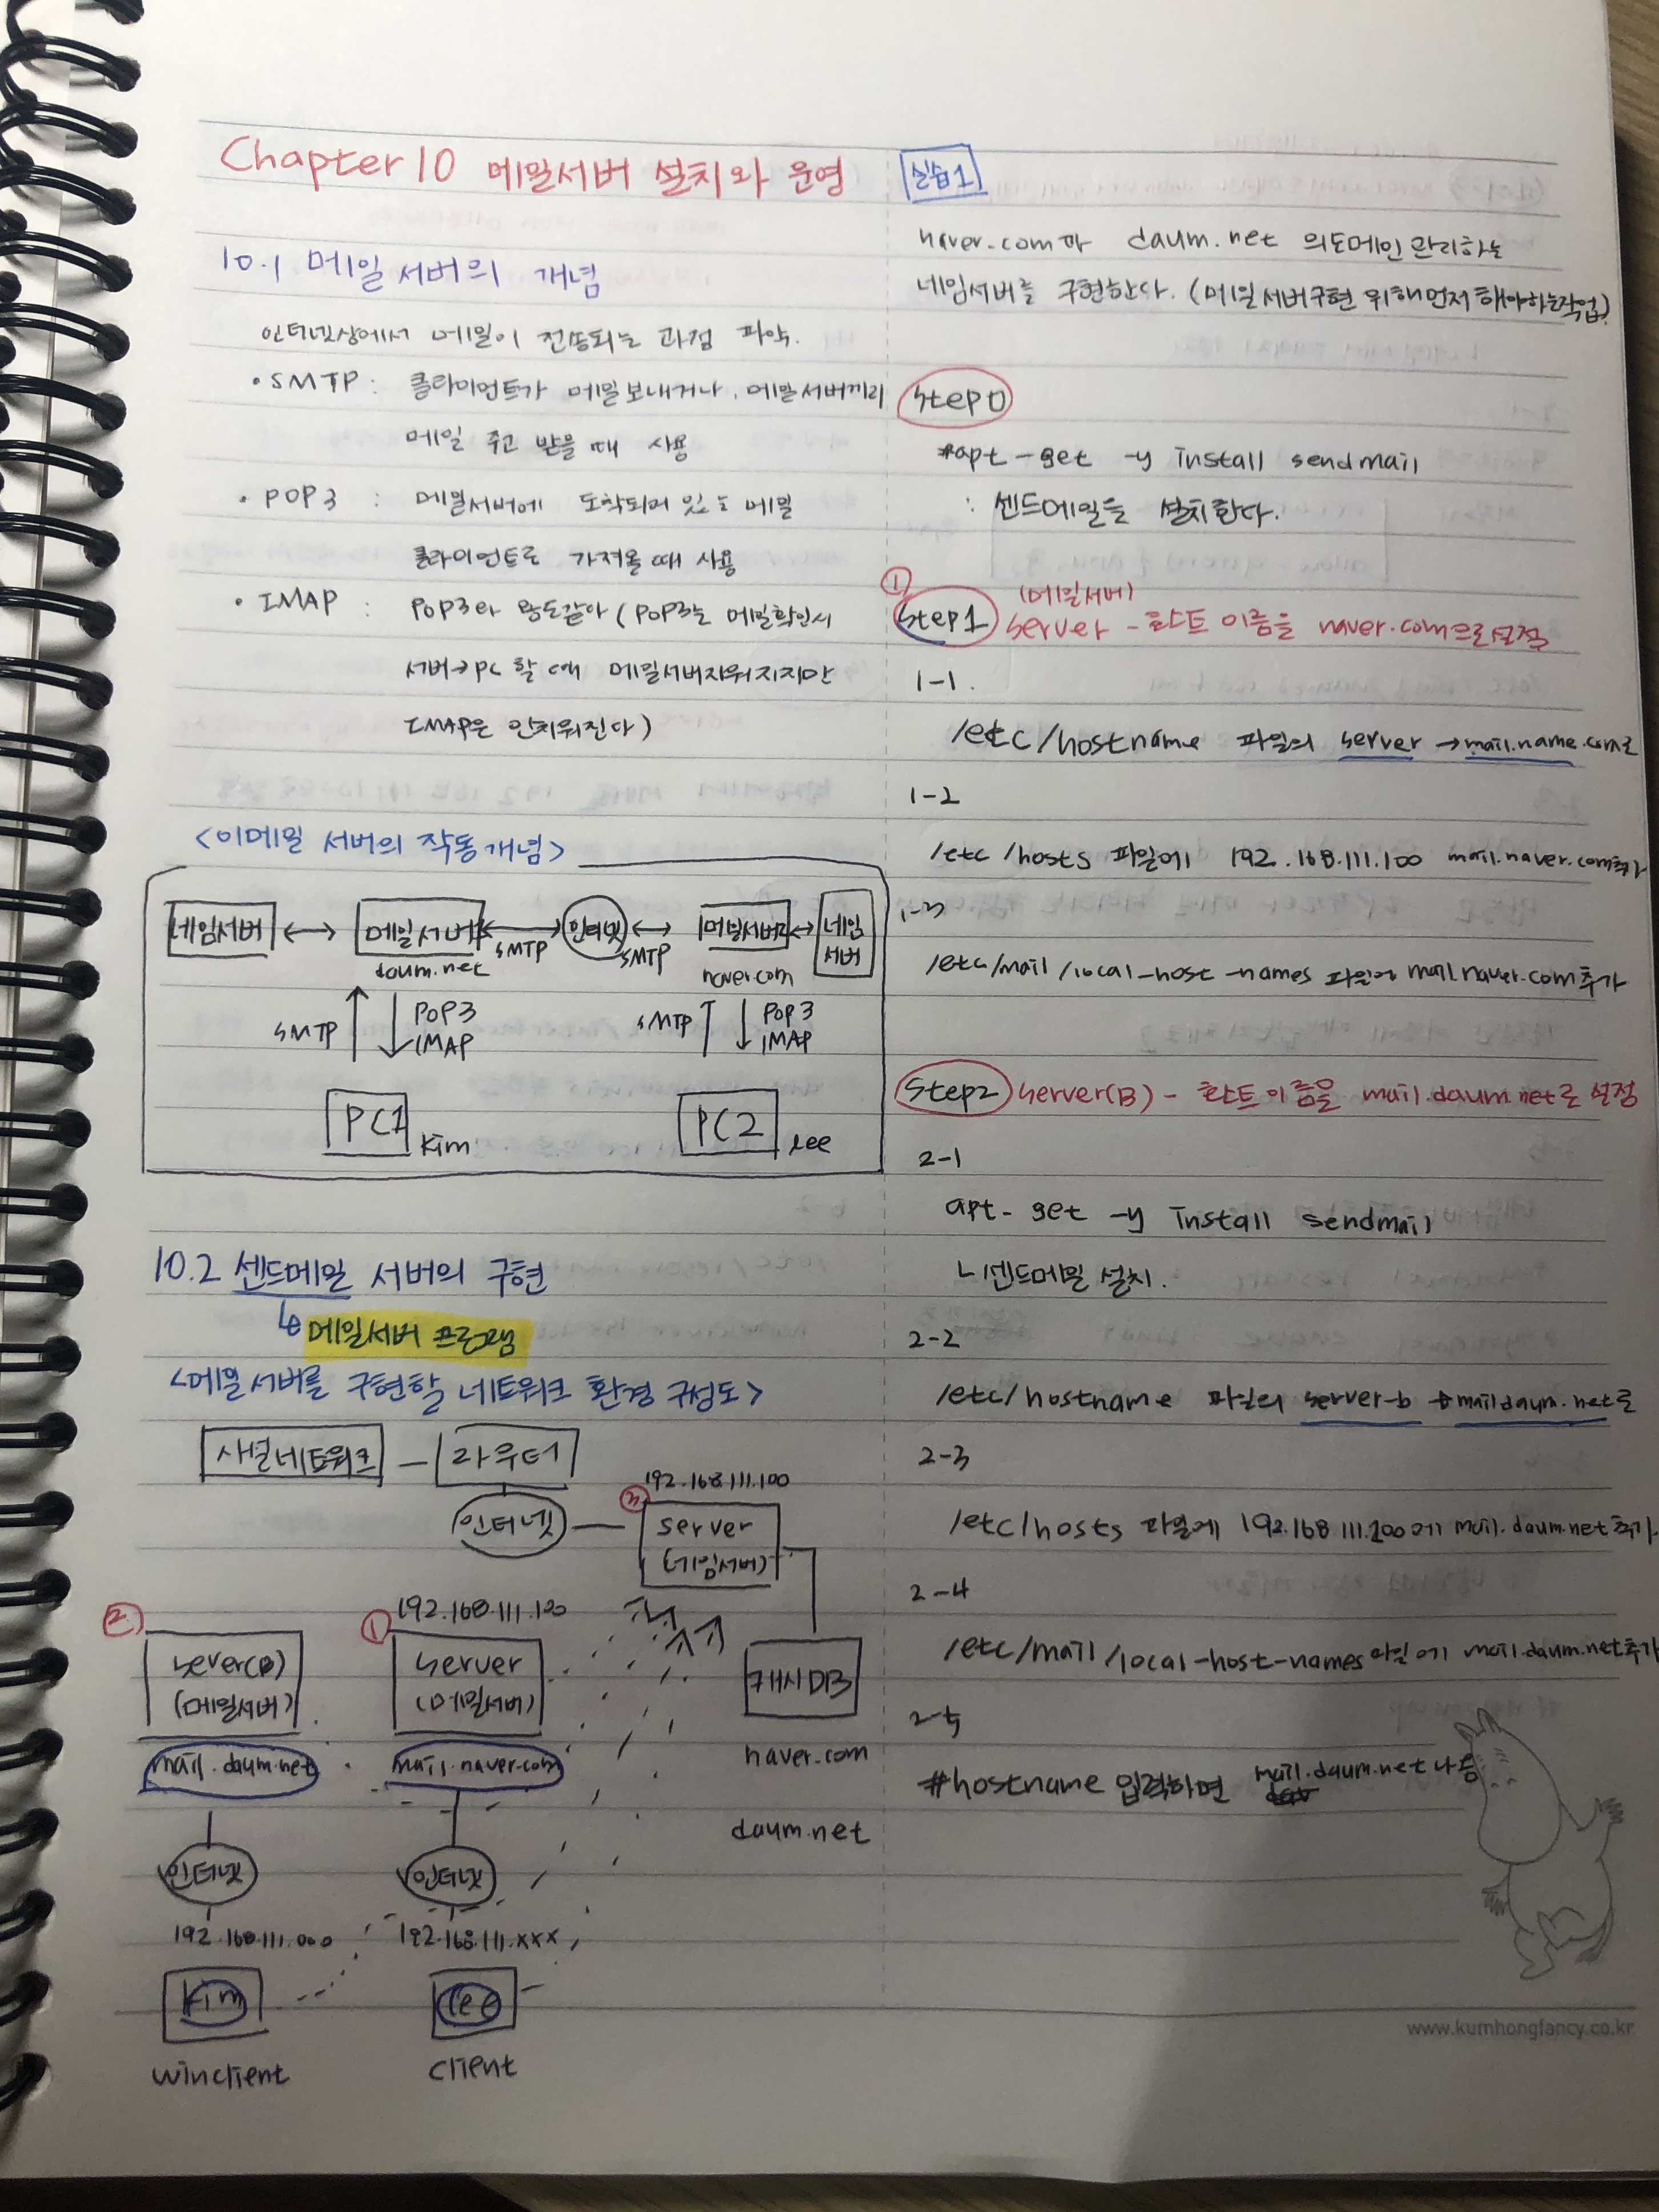 Chapter10 메일서버 설치와 운영
10.1 메일서버의 개념
인터넷상에서 메일이 전송되는 과정 파악.
• SMTP : 클라이언트가 메일보내거나, 메일서버끼리
메일 주고 받을 때 사용
• POP3 : 메일서버에 도착되어 있는 메일
클라이언트로 가져올때 사용
• IMAP : POP3와 용도같아 (POP3는 메일확인시
서버→PC 할 때 메일서버지워지지만
IMAP은 안지워진다)
<이메일 서버의 작동개념>
네임서버 ↔ 메일서버1 ↔ 인터넷 ↔ 메일서버2 ↔ 네임서버
SMTP SMTP
daum.net naver.com
SMTP POP3 IMAP SMTP POP3 IMAP
PC1 kim PC2 lee
10.2 센드메일 서버의 구현
↳ 메일서버 프로그램
<메일서버를 구현할 네트워크 환경 구성도>
사설네트워크 — 라우터
192.168.111.100
인터넷 — ③ server
(네임서버)
192.168.111.120
② Sever(B)
(메일서버)
① Server
(메일서버)
캐시DB
mail.daum.net mail.naver.com naver.com
daum.net
인터넷 인터넷
192.168.111.000 192.168.111.xxx
kim lee
winclient client
실습1
naver.com과 daum.net 의도메인관리하는
네임서버를 구현한다. (메일서버구현 위해먼저해야하는작업)
Step0
#apt-get -y install sendmail
: 센드메일을 설치한다.
①
(메일서버)
Step1 Server - 호스트 이름을 naver.com으로설정
1-1.
/etc/hostname 파일의 server → mail.name.com로
1-2
/etc/hosts 파일에 192.168.111.100 mail.naver.com추가
1-3
/etc/mail/local-host-names 파일에 mail.naver.com추가
Step2 Server(B) - 호스트이름을 mail.daum.net로 설정
2-1
apt-get -y install sendmail
ㄴ센드메일 설치.
2-2
/etc/hostname 파일의 server-b → mail.daum.net로
2-3
/etc/hosts 파일에 192.168.111.200에 mail.daum.net추가
2-4
/etc/mail/local-host-names파일에 mail.daum.net추가
2-5
#hostname 입력하면 mail.daum.net나옴
www.kumhongfancy.co.kr